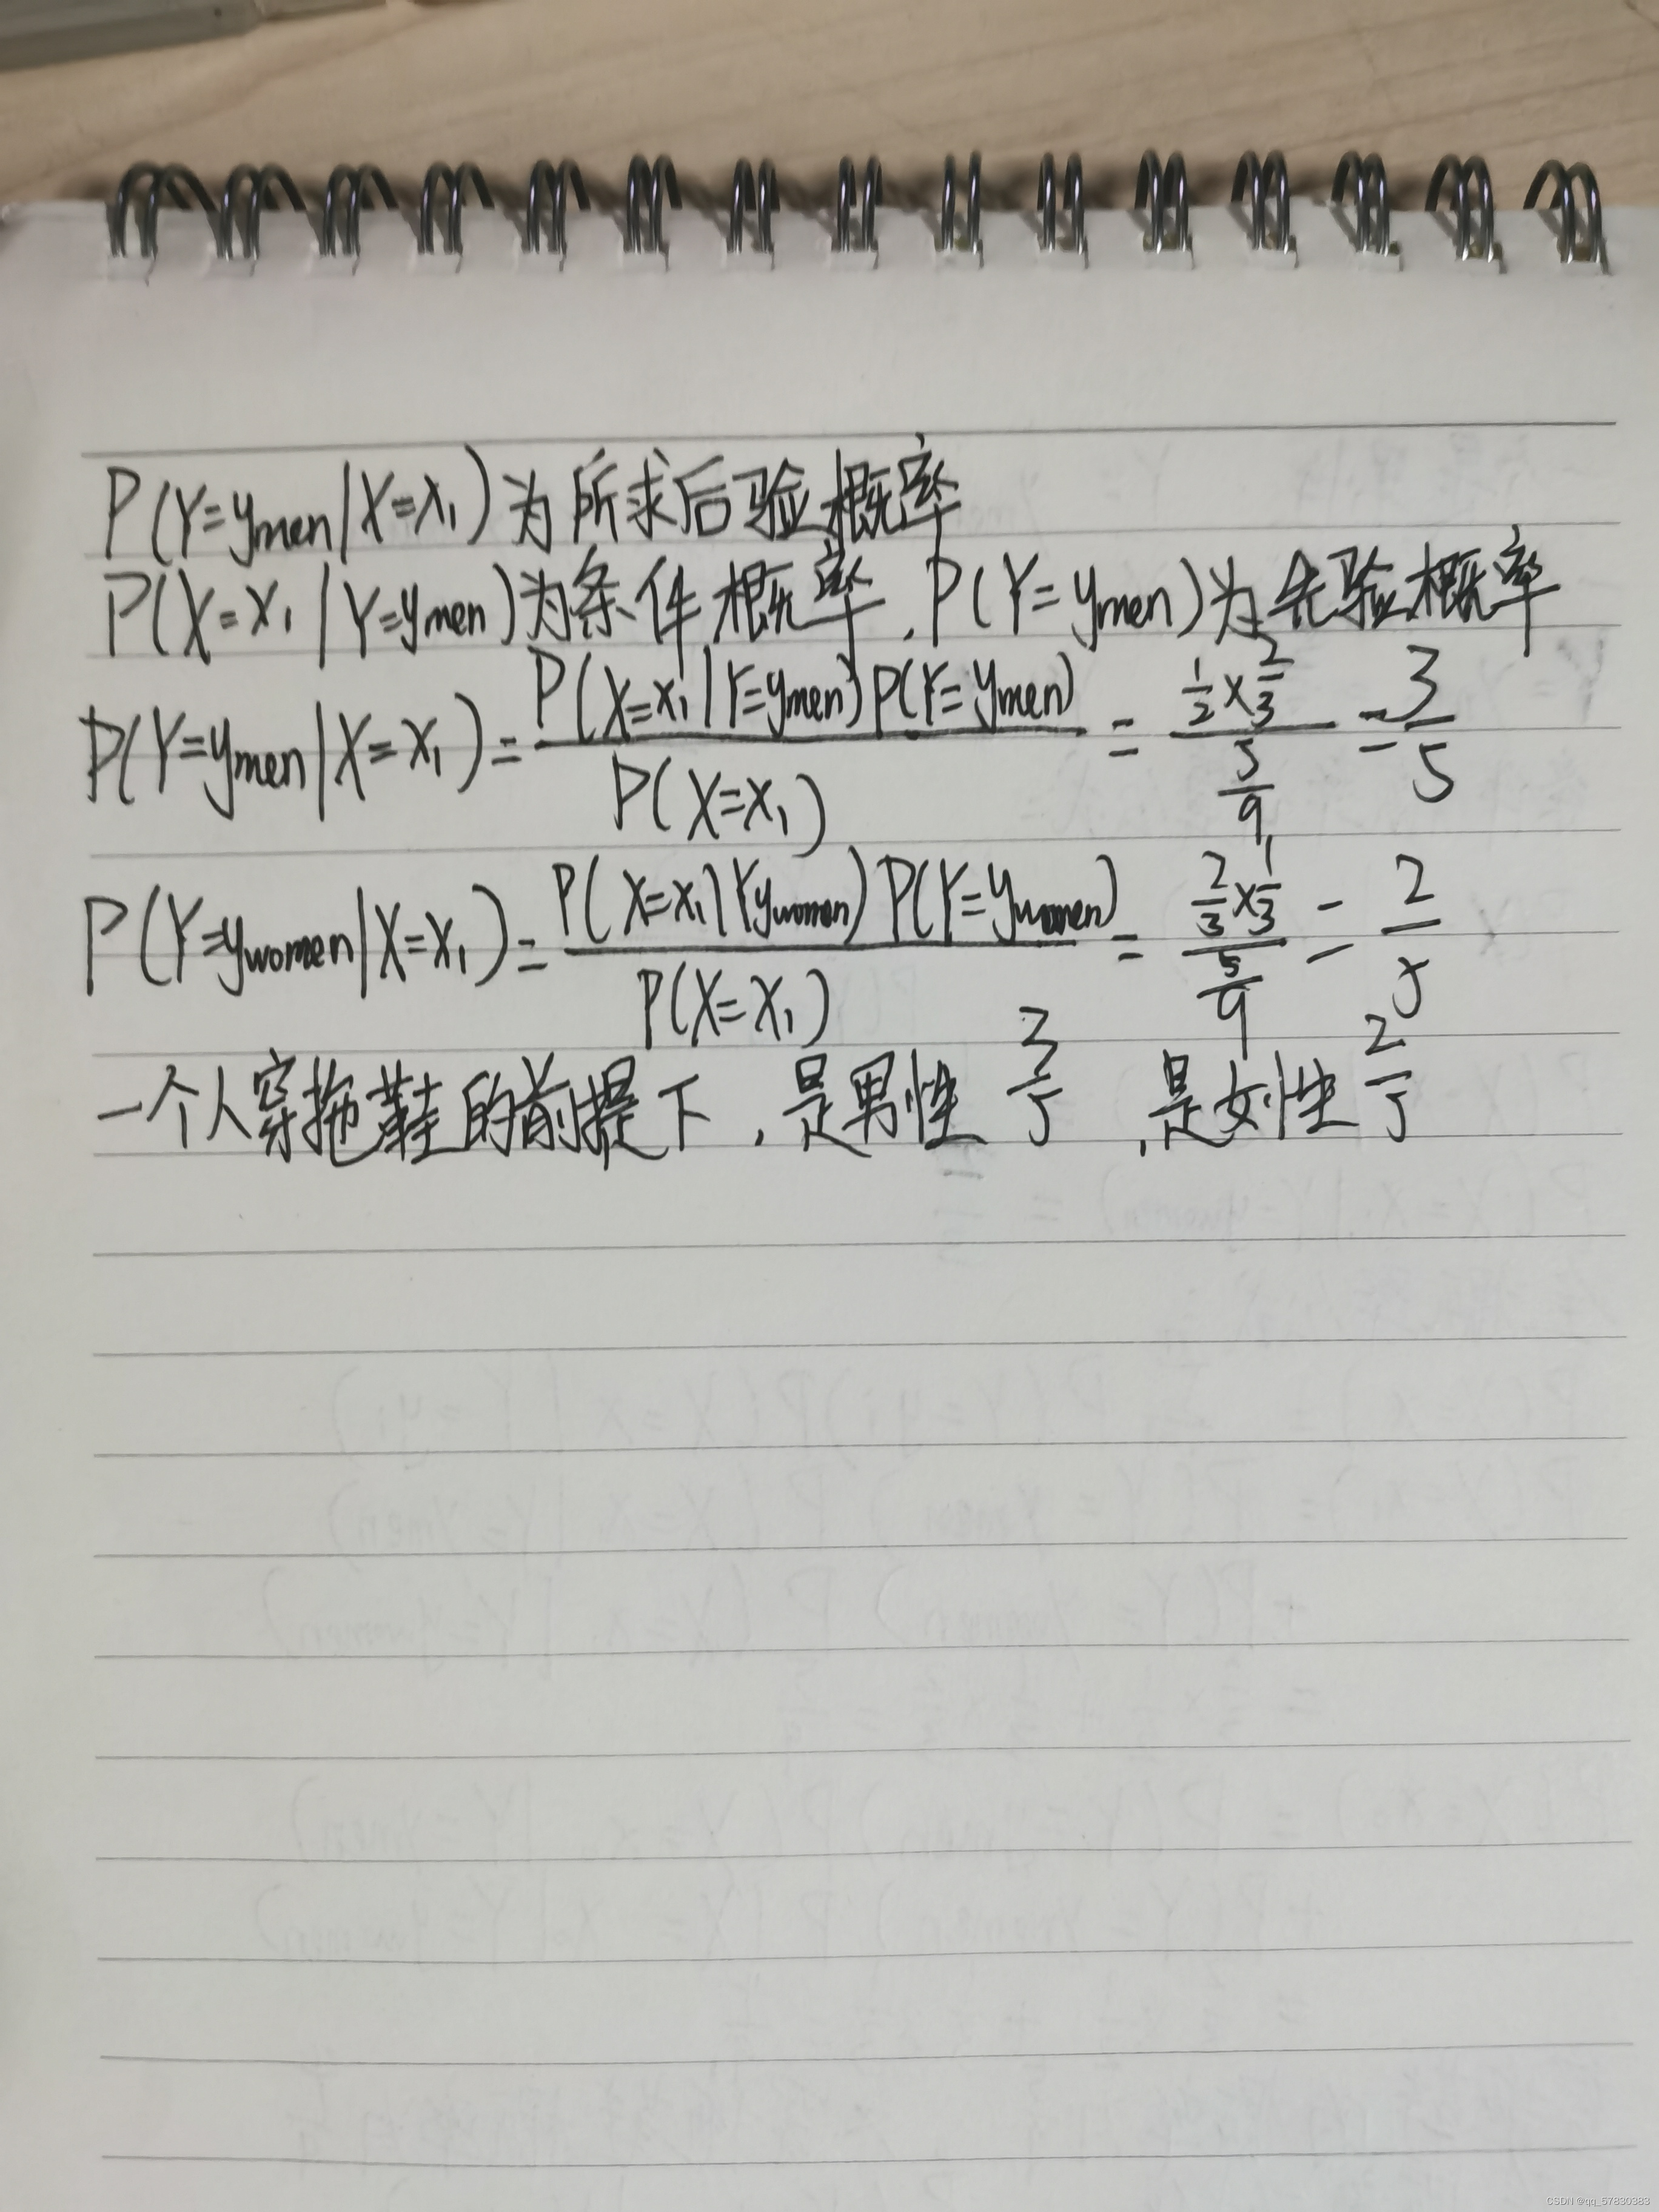 P(Y=ymen|X=x₁)为所求后验概率
P(X=x₁|Y=ymen)为条件概率,P(Y=ymen)为先验概率
P(Y=ymen|X=x₁)=P(X=x₁|Y=ymen)P(Y=ymen)/P(X=x₁)=(1/2×2/3)/(5/9)=3/5
P(Y=ywomen|X=x₁)=P(X=x₁|Yywomen)P(Y=ywomen)/P(X=x₁)=(2/3×1/3)/(5/9)=2/5
一个人穿拖鞋的前提下,是男性3/5,是女性2/5
CSDN @qq_57830383